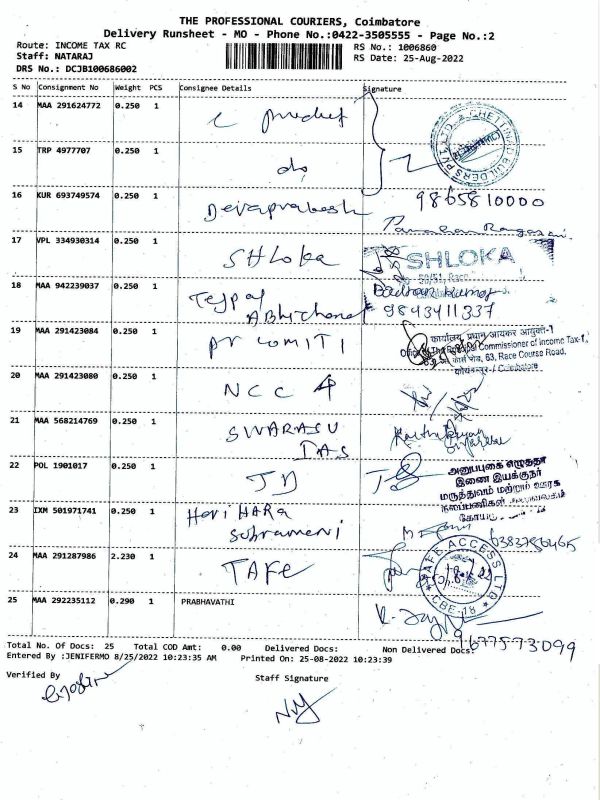 THE PROFESSIONAL COURIERS, Coimbatore
Delivery Runsheet - MO - Phone No.:0422-3505555 - Page No.:2
Route: INCOME TAX RC
RS No.: 1006860
Staff: NATARAJ
RS Date: 25-Aug-2022
DRS No.: DCJB100686002
S No Consignment No Weight PCS Consignee Details Signature
14 MAA 291624772 0.250 1
CHETTINAD BUILDERS PVT. LTD.
15 TRP 4977707 0.250 1 do,
16 KUR 693749574 0.250 1 Devaprakash 9865810000
17 VPL 334930314 0.250 1 SHLoka
SHLOKA
50/51, Race
18 MAA 942239037 0.250 1 Tejpal
9843411337
19 MAA 291423084 0.250 1 Pr comiti
कार्यालय, प्रधान आयकर आयुक्त-1
Office of The Principal Commissioner of Income Tax-1,
63, Race Course Road,
कोयम्बत्तूर / Coimbatore
20 MAA 291423080 0.250 1 NCC
21 MAA 568214769 0.250 1 SWARASU
IAS
22 POL 1901017 0.250 1 JD
இணை இயக்குநர்
மருத்துவம் மற்றும் ஊரக
23 IXM 501971741 0.250 1 Hari HARA
24 MAA 291287986 2.230 1 TAFE
SAFE ACCESS LTD
CBE-18
25 MAA 292235112 0.290 1 PRABHAVATHI
Total No. Of Docs: 25 Total COD Amt: 0.00 Delivered Docs: Non Delivered Docs:
Entered By :JENIFERMO 8/25/2022 10:23:35 AM Printed On: 25-08-2022 10:23:39
Verified By
Staff Signature